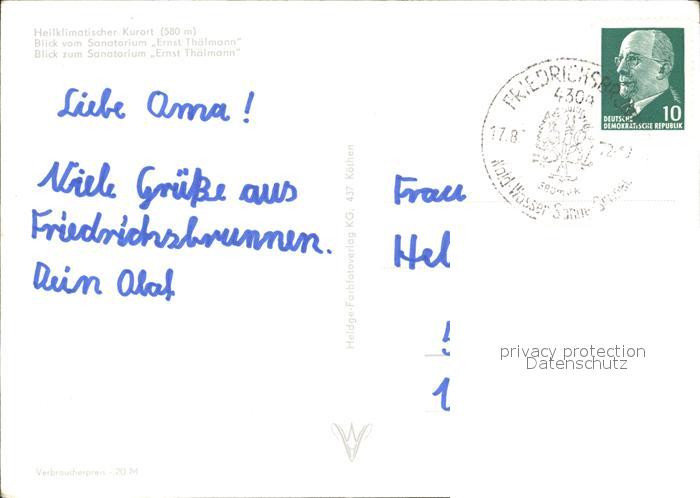 Heilklimatischer Kurort (580 m)
Blick vom Sanatorium „Ernst Thälmann"
Blick zum Sanatorium „Ernst Thälmann"
Liebe Oma!
Viele Grüße aus
Friedrichsbrunnen.
Dein Olaf
Heldge-Farbfotoverlag KG, 437 Köthen
4304
17.8.
DEUTSCHE
DEMOKRATISCHE REPUBLIK
10
Frau
Hel
1
privacy protection
Datenschutz
Verbraucherpreis -.20 M